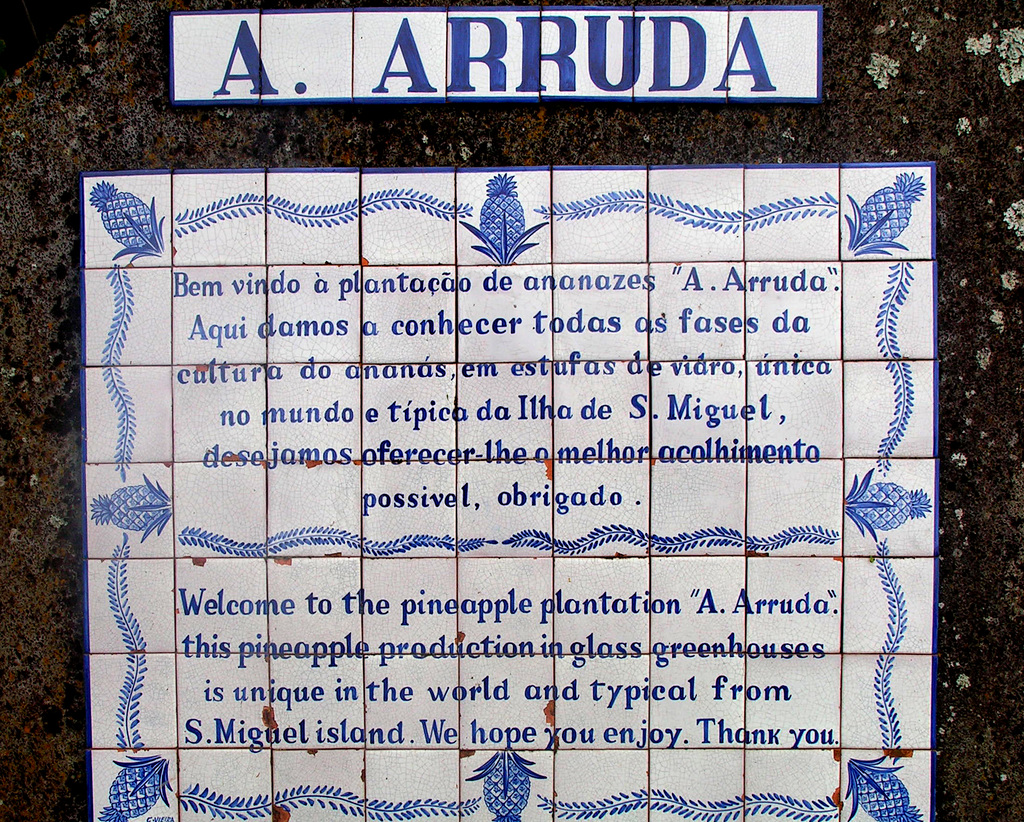 A. ARRUDA
Bem vindo à plantação de ananazes "A. Arruda".
Aqui damos a conhecer todas as fases da
cultura do ananás, em estufas de vidro, única
no mundo e típica da Ilha de S. Miguel,
desejamos oferecer-lhe o melhor acolhimento
possivel, obrigado.
Welcome to the pineapple plantation "A. Arruda".
this pineapple production in glass greenhouses
is unique in the world and typical from
S. Miguel island. We hope you enjoy. Thank you.